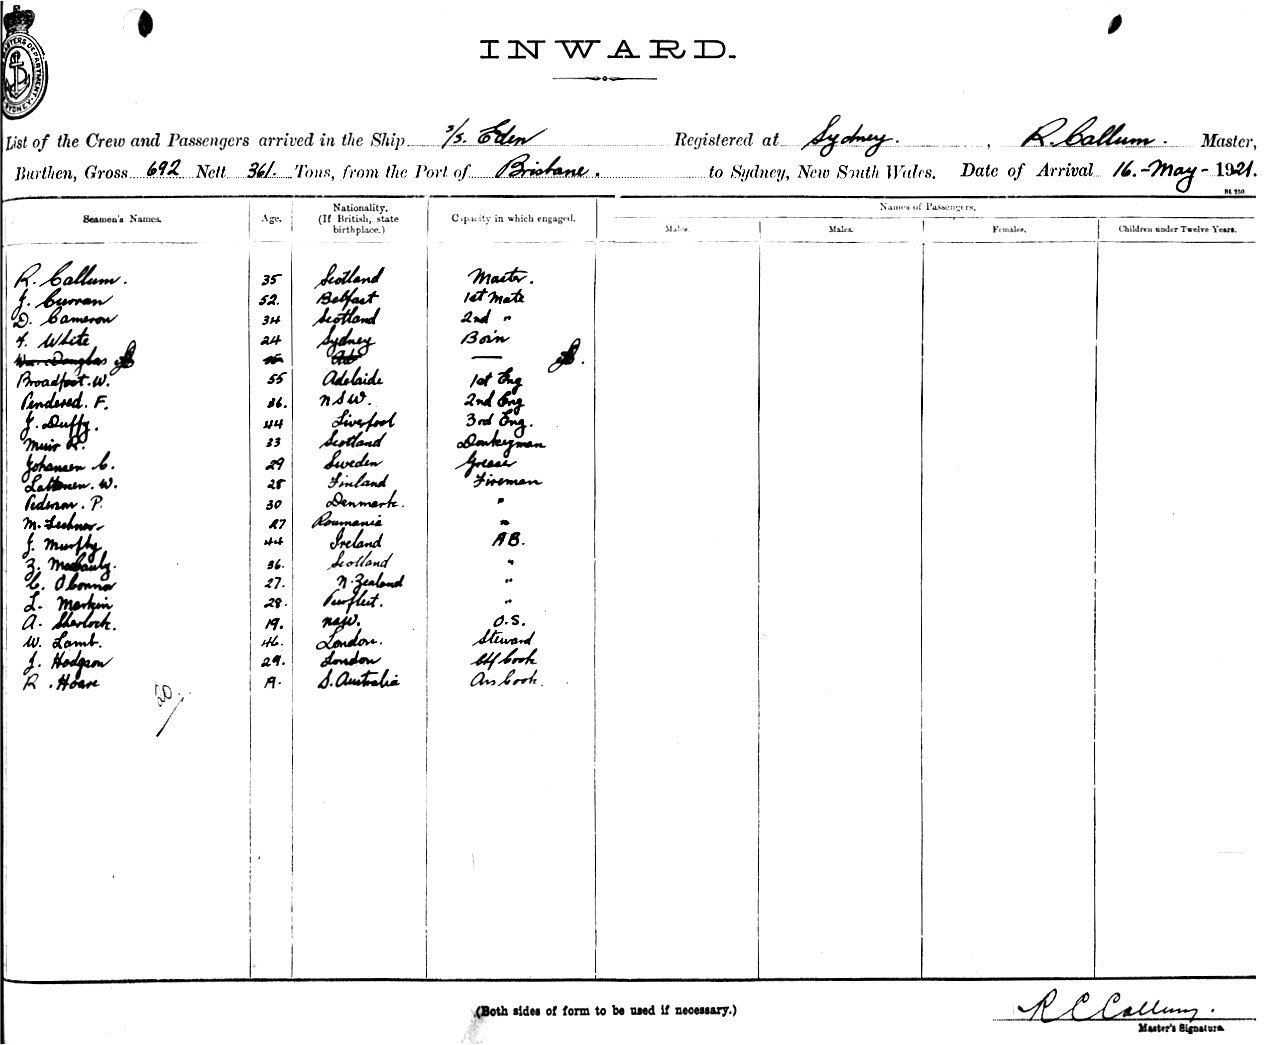 INWARD.
List of the Crew and Passengers arrived in the Ship S/S. Eden Registered at Sydney. , R. Callum. Master,
Burthen, Gross 692 Nett 361. Tons, from the Port of Brisbane. to Sydney, New South Wales. Date of Arrival 16.-May-1921.
Seamen's Names. Age. Nationality. (If British, state birthplace.) Capacity in which engaged. Names of Passengers.
Males. Males. Females. Children under Twelve Years.
R. Callum. 35 Scotland Master.
J. Curran 52. Belfast 1st Mate
D. Cameron 34 Scotland 2nd "
F. White 24 Sydney Bosn
Douglas —
Broadfoot. W. 55 Adelaide 1st Eng
Pendered. F. 36. NSW. 2nd Eng
J. Duffy. 44 Liverpool 3rd Eng.
Muir R. 33 Scotland Donkeyman
Johansen C. 29 Sweden Greaser
W. 28 Finland Fireman
Pederson. P. 30 Denmark. "
M. 27 Roumania "
J. Murphy 44 Ireland AB.
Macauly. 36. Scotland "
C. OConnor 27. N. Zealand "
L. Markin 28. Purfleet. "
A. Sherlock. 19. NSW. O.S.
W. Lamb. 46. London. Steward
J. Hodgson 29. London Chf Cook
R. Hoare S. Australia Ass Cook.
20
(Both sides of form to be used if necessary.)
R C Callum.
Master's Signature.